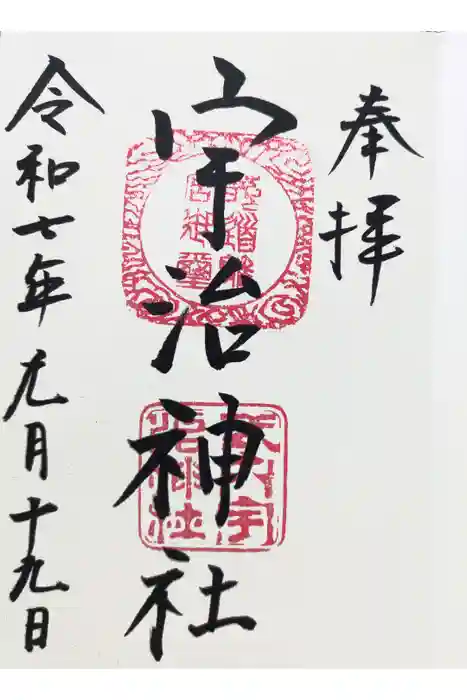 奉拝
宇治神社
令和七年九月十九日